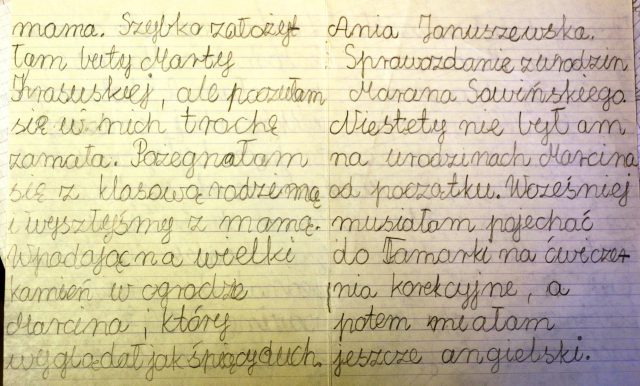 mama. Szybko założył
łam buty Marty
Krasuskiej, ale poczułam
się w nich trochę
zamała. Pożegnałam
się z klasową rodzeinną
i wyszłyśmy z mamą.
Wpadając na wielki
kamień w ogrodzie
Marcina, który
wyglądał jak śpiący duch.
Ania Januszewska.
Sprawozdanie z urodzin
Marcina Sawińskiego
Niestety nie był am
na urodzinach Marcina
od początku. Wcześniej
musiałam pojechać
do Tamarki na ćwicze-
nia korekcyjne, a
potem miałam
jeszcze angielski.